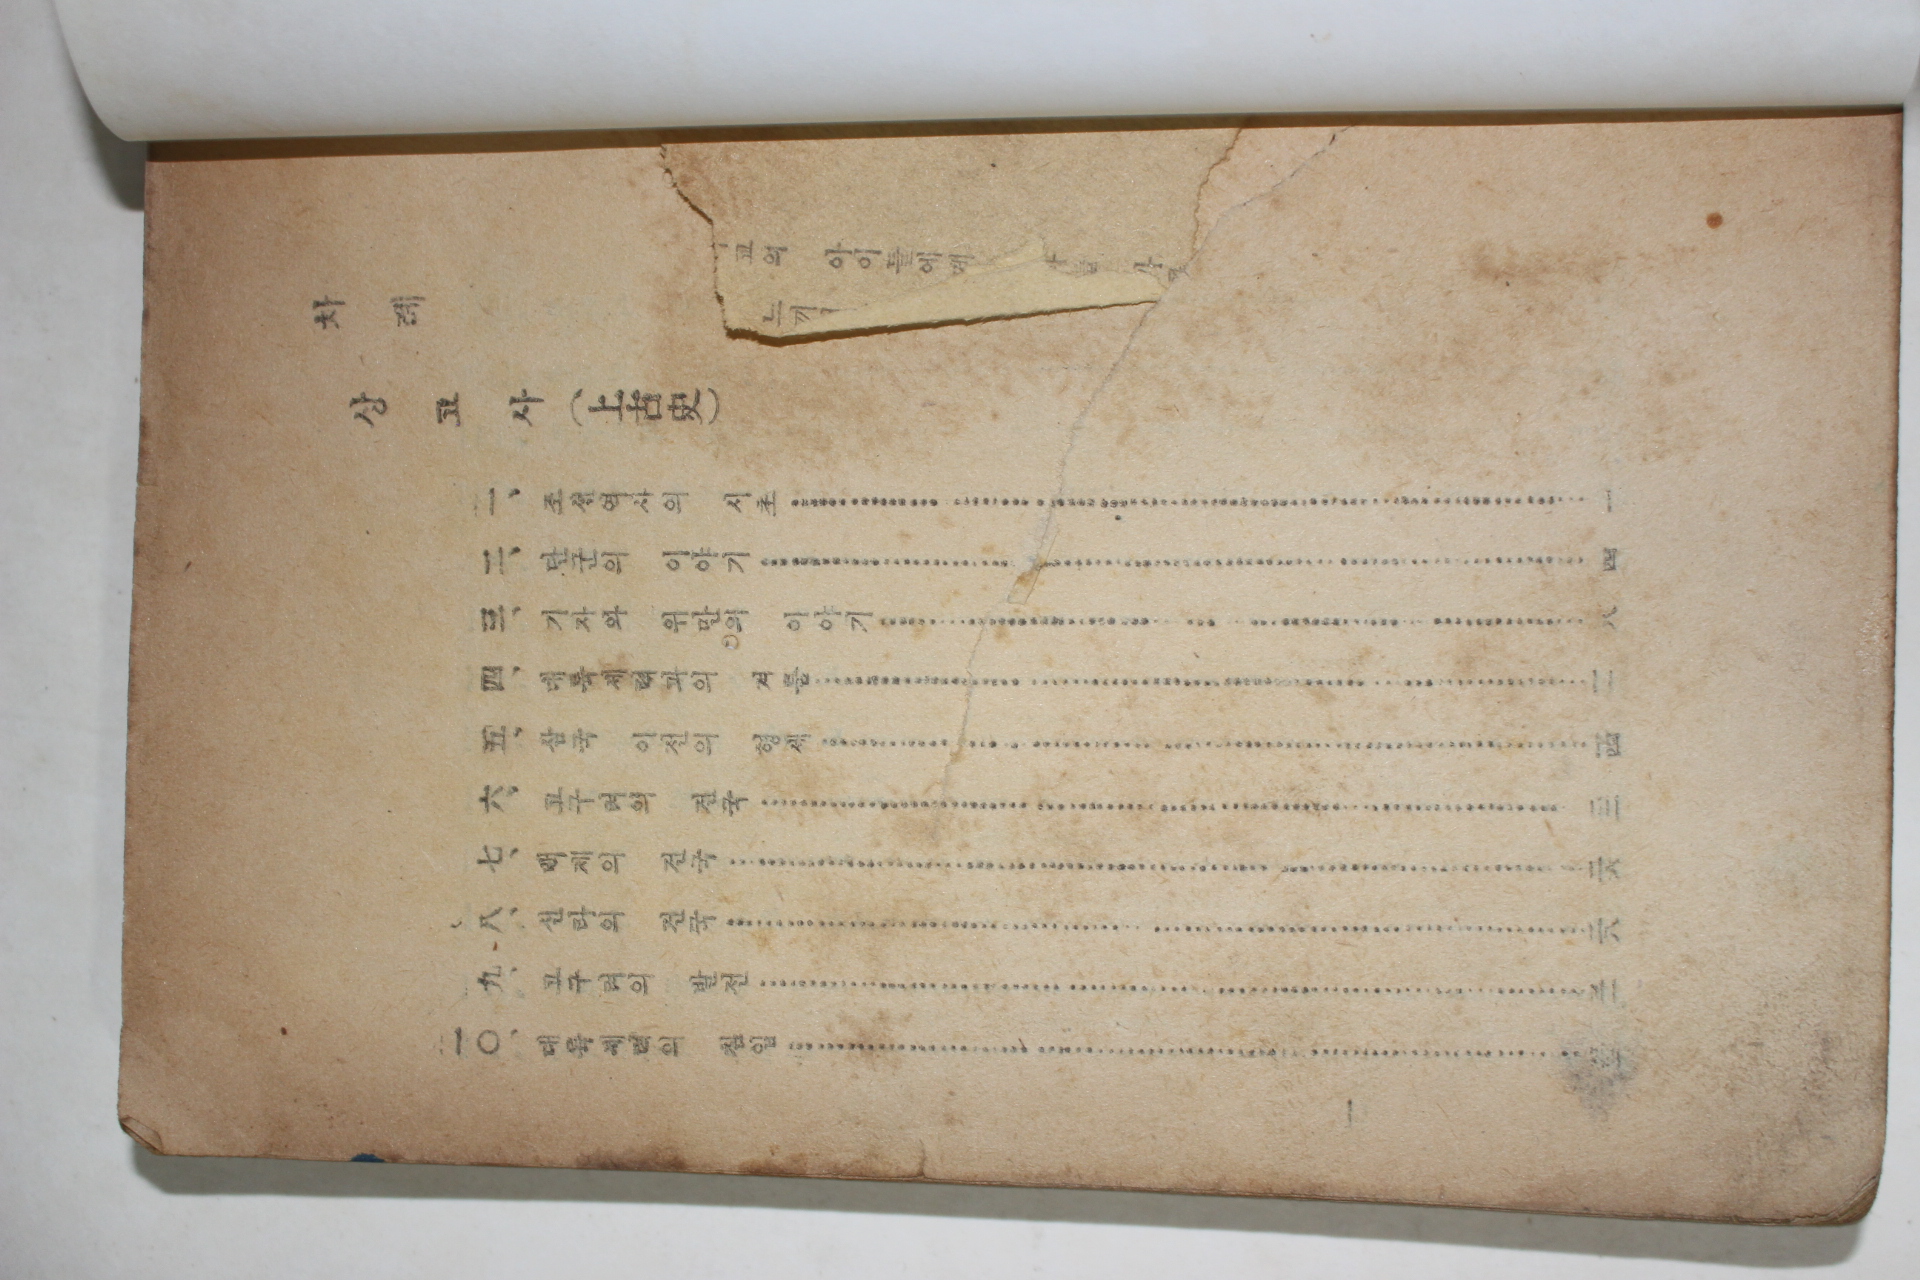 차례
상고사(上古史)
一、조선역사의 시초 一
二、단군의 이야기 四
三、기자와 위만의 이야기 八
四、대륙세력과의 겨룸 一二
五、삼국 이전의 형세 一四
六、고구려의 건국
七、백제의 건국 二六
八、신라의 건국 二八
九、고구려의 발전
一〇、대륙세력의 침입
一
교의 아이들에게
느끼